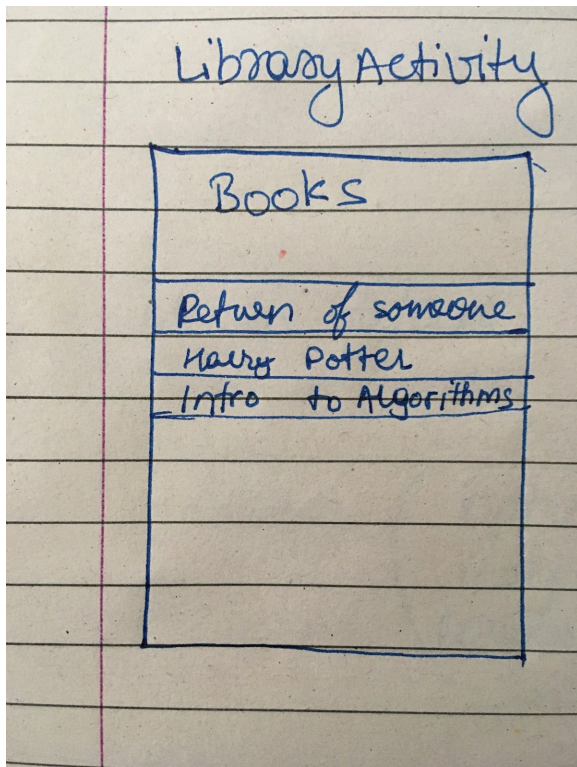 Library Activity
Books
Return of someone
Harry Potter
Intro to Algorithms